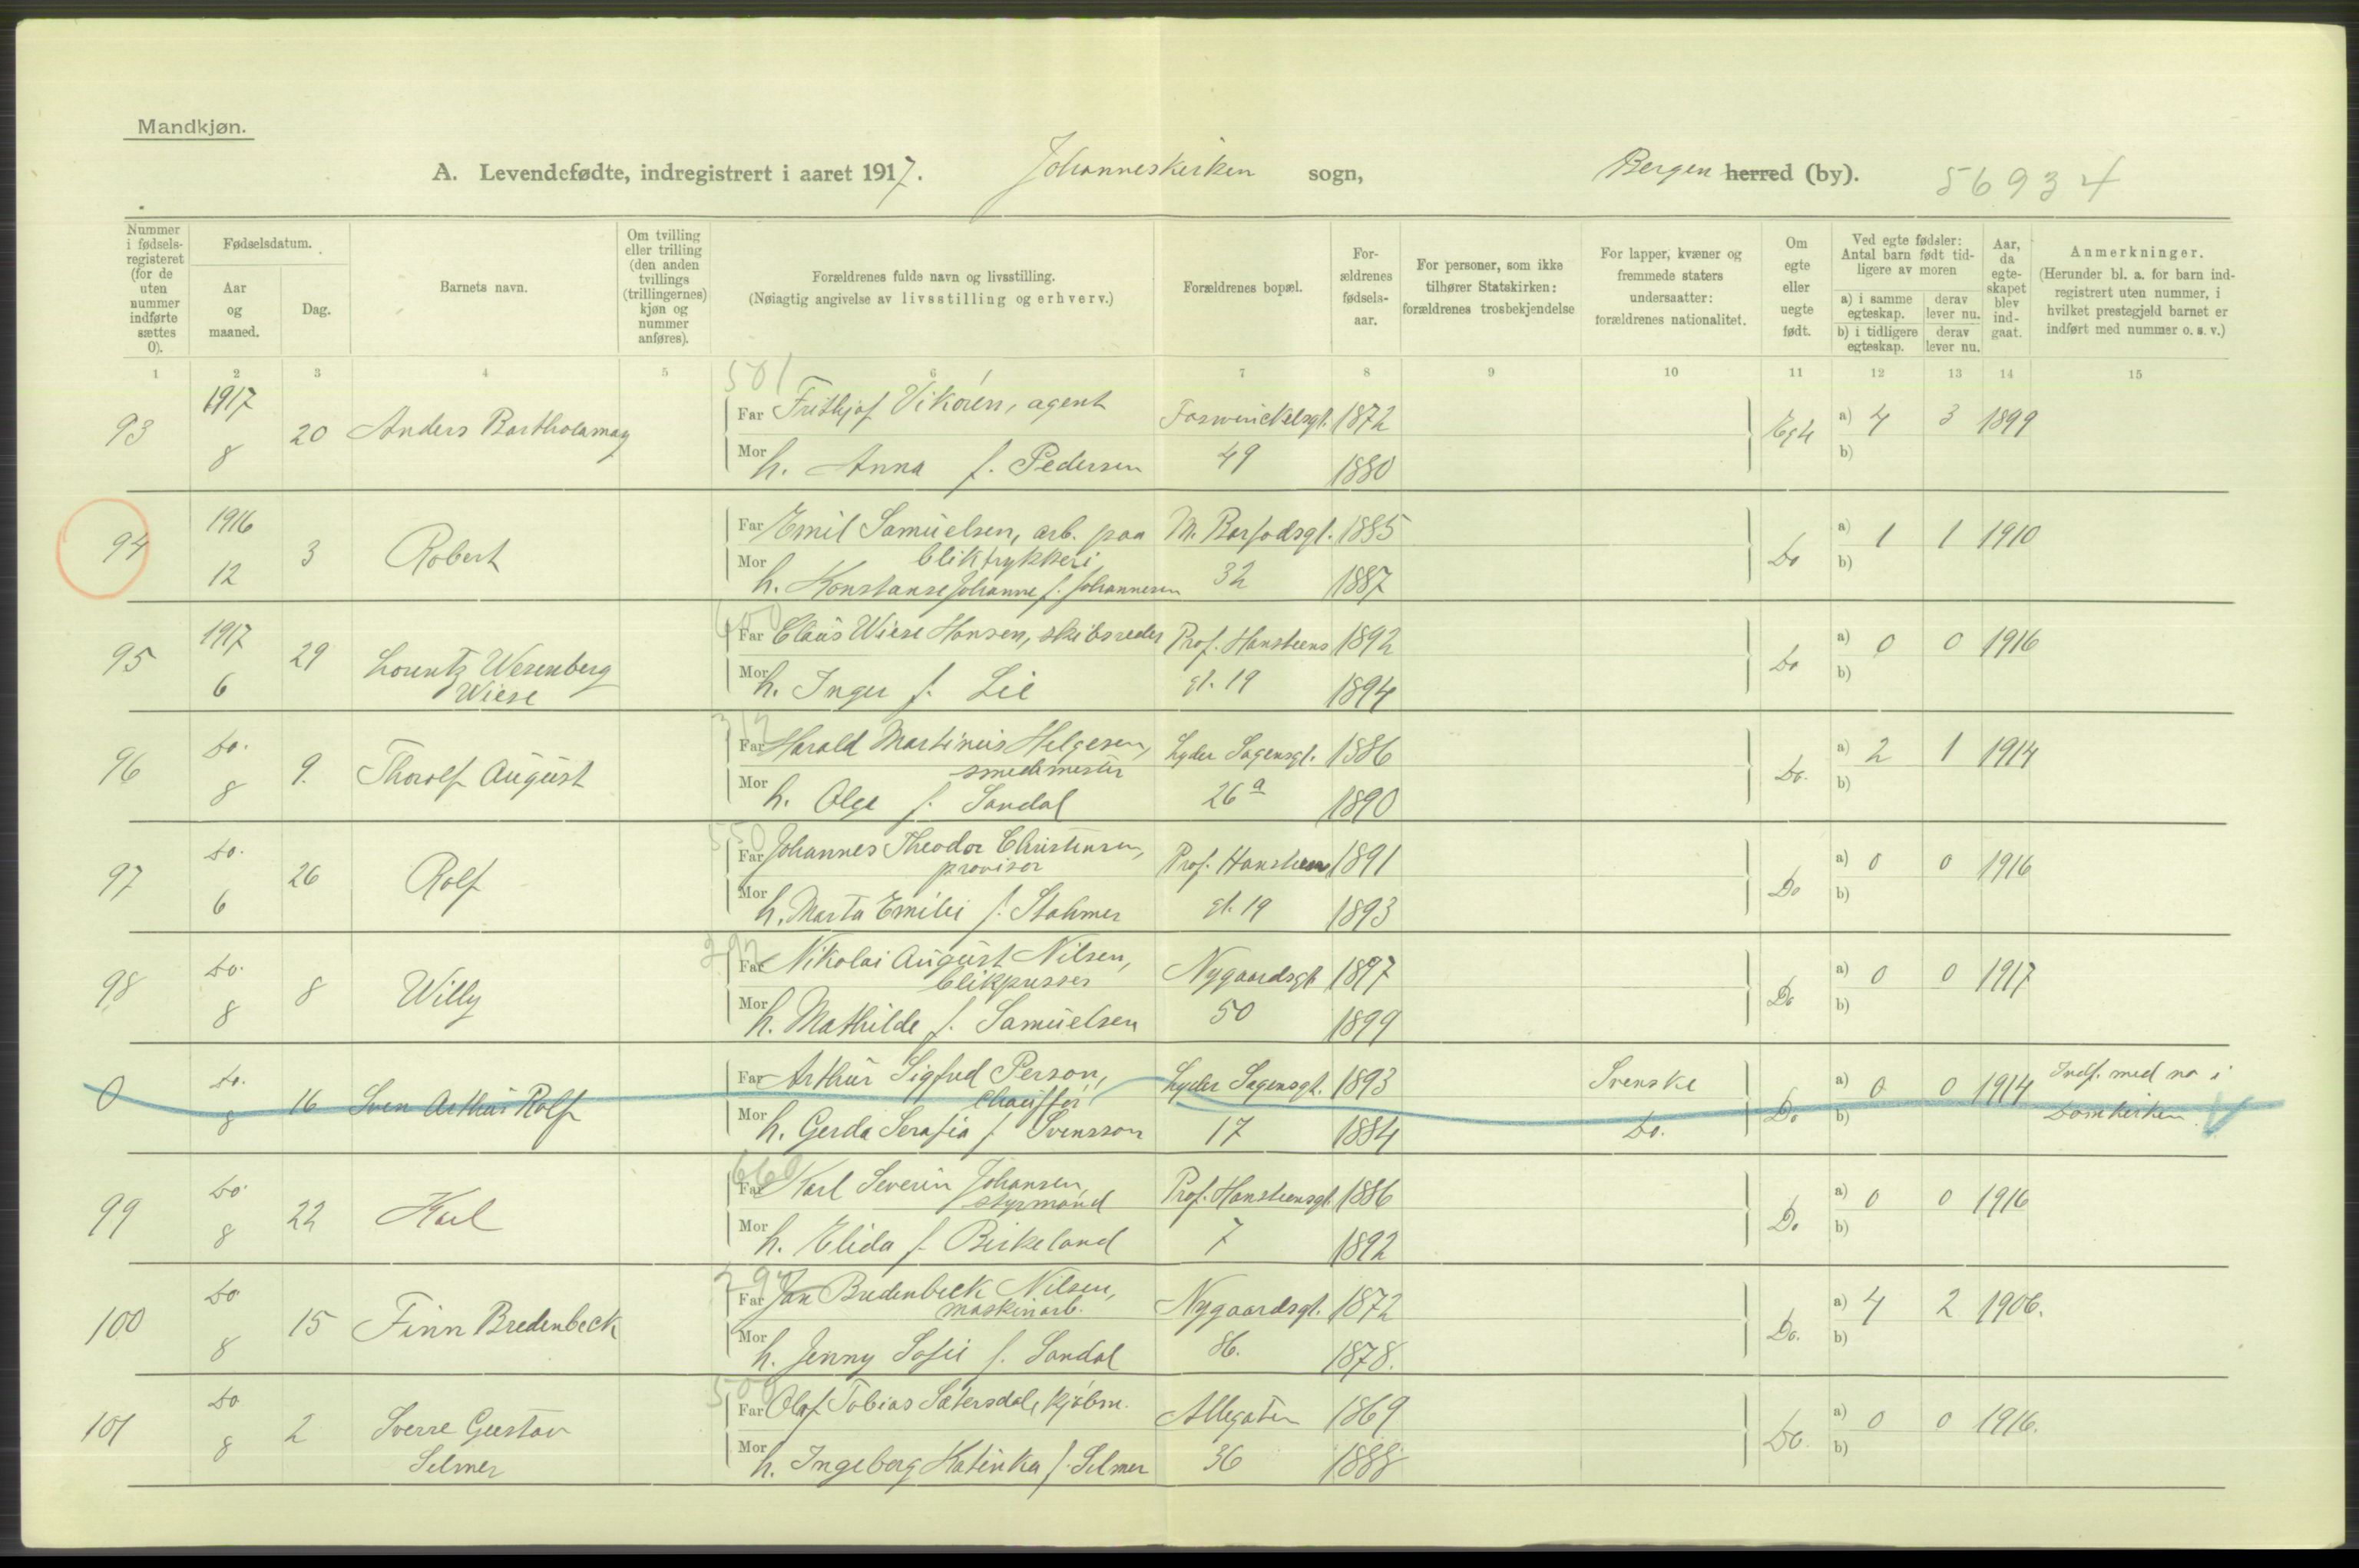 Mandkjøn.
A. Levendefødte, indregistrert i aaret 1917. Johanneskirken sogn, Bergen herred (by). 56934
Nummer i fødsels-registeret (for de uten nummer indførte sættes 0).
Fødselsdatum.
Aar og maaned.
Dag.
Barnets navn.
Om tvilling eller trilling (den anden tvillings (trillingernes) kjøn og nummer anføres).
Forældrenes fulde navn og livsstilling.
(Nøiagtig angivelse av livsstilling og erhverv.)
Forældrenes bopæl.
For-ældrenes fødsels-aar.
For personer, som ikke tilhører Statskirken: forældrenes trosbekjendelse
For lapper, kvæner og fremmede staters undersaatter: forældrenes nationalitet.
Om egte eller uegte født.
Ved egte fødsler: Antal barn født tid-ligere av moren
a) i samme egteskap. derav lever nu.
b) i tidligere egteskap. derav lever nu.
Aar, da egte-skapet blev ind-gaat.
Anmerkninger.
(Herunder bl. a. for barn ind-registrert uten nummer, i hvilket prestegjeld barnet er indført med nummer o. s. v.)
1 2 3 4 5 6 7 8 9 10 11 12 13 14 15
501
93 1917 8 20 Anders Bartholomay Far Frithjof Vikören, agent Foswinckelsgt. 1872 Egte a) 4 3 1899
Mor h. Anna f. Pedersen 49 1880 b)
94 1916 12 3 Robert Far Emil Samuelsen, arb. paa M. Barfodsgt. 1885 Do a) 1 1 1910
bliktrykkeri
Mor h. Konstanse Johanne f. Johannesen 32 1887 b)
95 1917 6 29 Lorentz Wesenberg Far Claus Wiese Hansen, skibsreder Prof. Hansteens 1892 Do a) 0 0 1916
Wiese Mor h. Inger f. Lie gt. 19 1894 b)
96 Do. 8 9. Thorolf August Far Harald Martinius Helgesen, Lyder Sagensgt. 1886 Do. a) 2 1 1914
smedmester
Mor h. Olga f. Sandal 26 a 1890 b)
550
97 Do. 6 26 Rolf Far Johannes Theodor Christensen, Prof. Hansteens 1891 Do a) 0 0 1916
provisor
Mor h. Marta Emilie f. Stahmer gt. 19 1893 b)
98 Do. 8 8 Willy Far Nikolai August Nilsen, Nygaardsgt. 1897 Do a) 0 0 1917
blikpusser
Mor h. Mathilde f. Samuelsen 50 1899 b)
0 Do. 8 16 Sven Arthur Rolf Far Arthur Sigfrid Person, Lyder Sagensgt. 1893 Svenske Do a) 0 0 1914 Indf. med no i
chauffør
Mor h. Gerda Serafia f. Svensson 17 1884 Do. b) Domkirken
660
99 Do. 8 22 Karl Far Karl Severin Johansen, Prof. Hansteensgt. 1886 Do. a) 0 0 1916
styrmand
Mor h. Elida f. Birkeland 7 1892 b)
100 Do 8 15 Finn Bredenbeck Far Jan Bredenbeck Nilsen, Nygaardsgt. 1872 Do. a) 4 2 1906.
maskinarb.
Mor h. Jenny Sofie f. Sandal 86. 1878. b)
500
101 Do 8 2 Sverre Gustav Far Olaf Tobias Sætersdal, kjøbm. Allegaten 1869 Do. a) 0 0 1916.
Selmer Mor h. Ingeborg Katinka f. Selmer 36 1888 b)